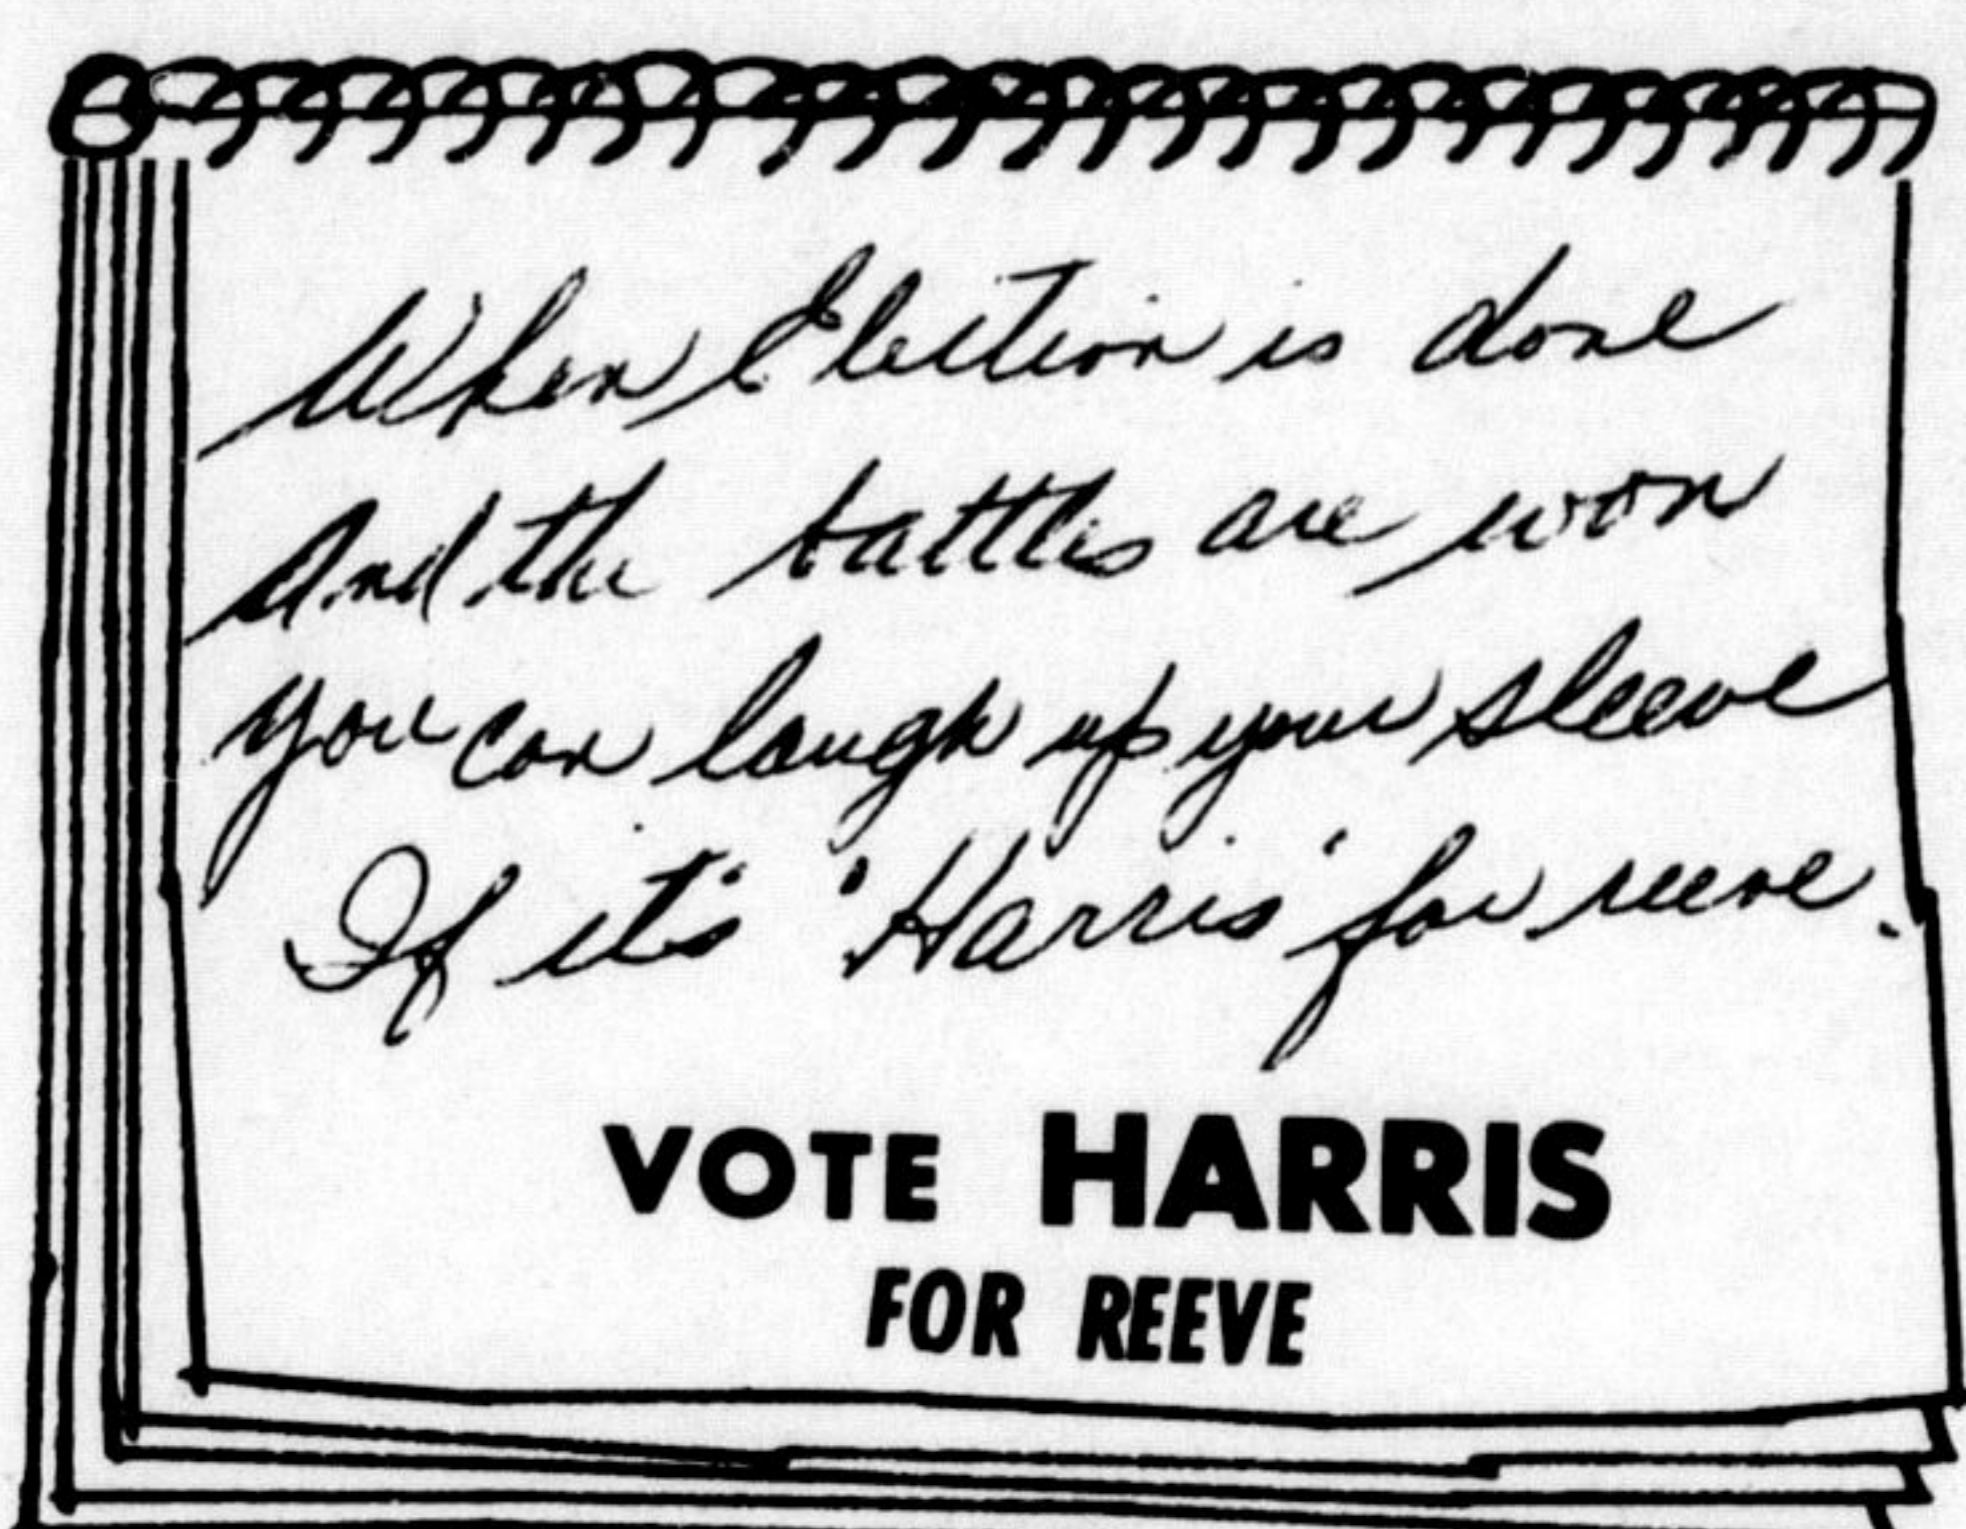 When Election is done
And the battles are won
You can laugh up your sleeve
If it's 'Harris' for reeve.
VOTE HARRIS
FOR REEVE